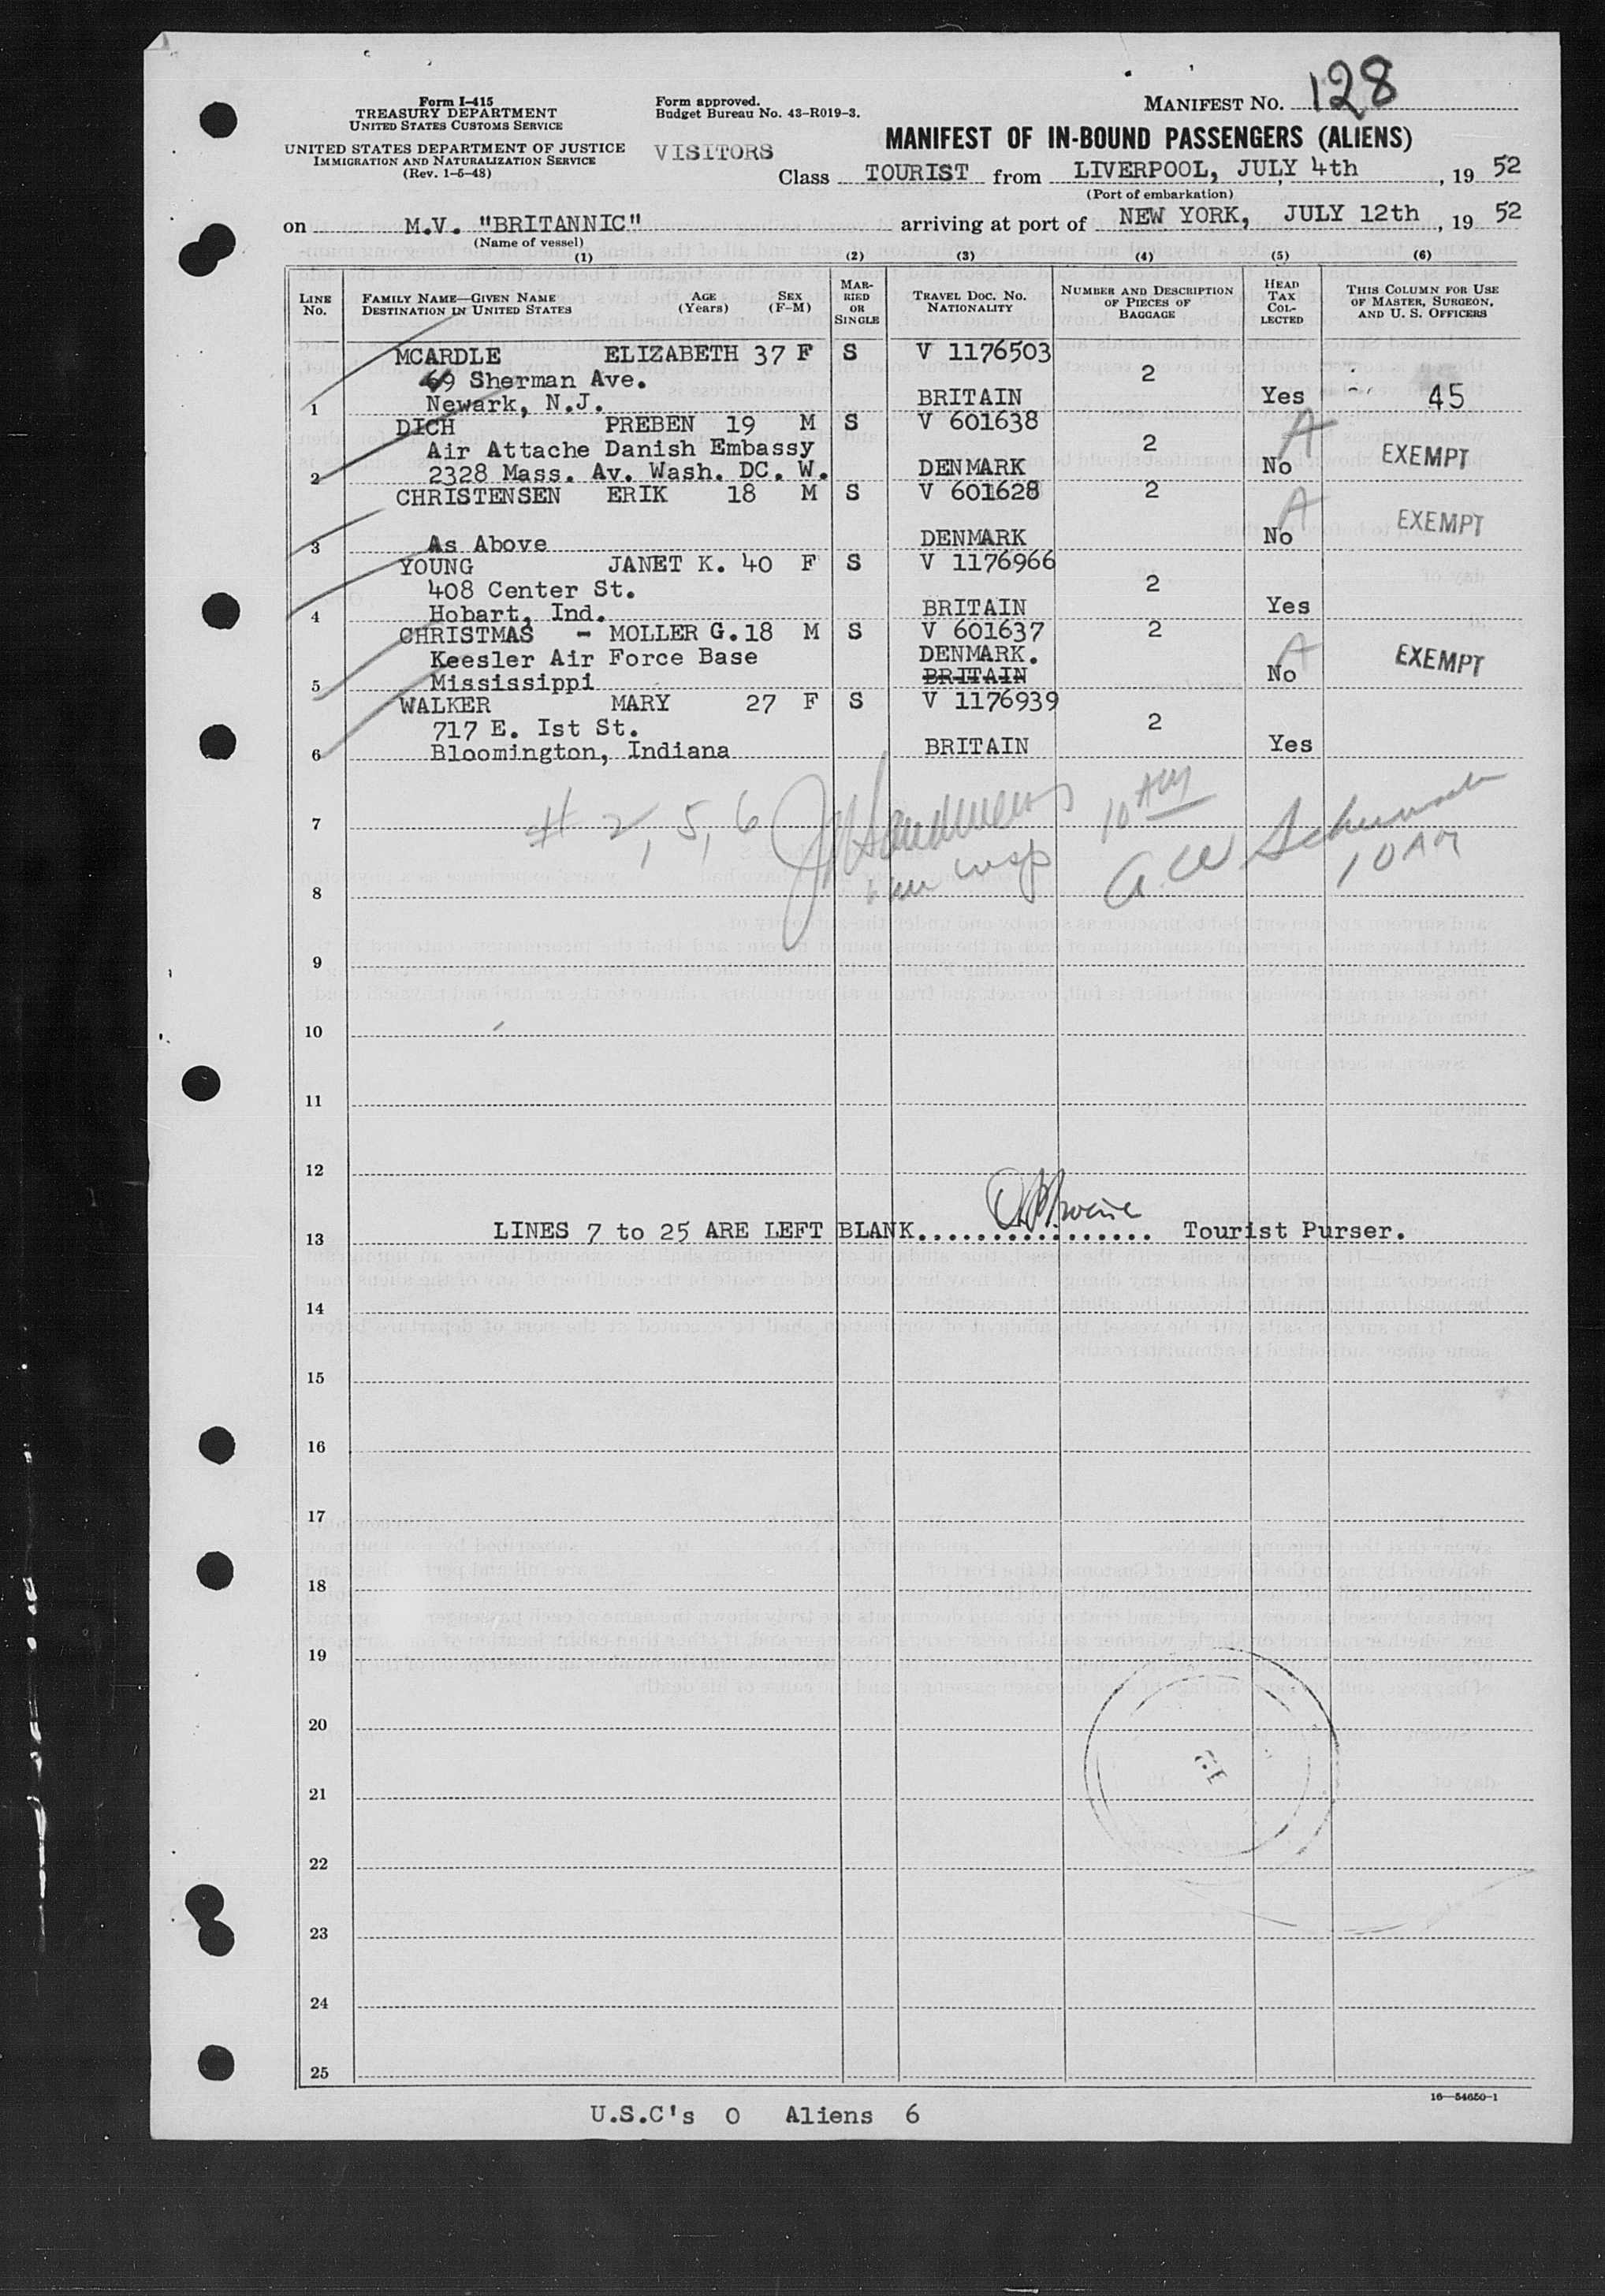 MANIFEST NO. 128
Form I-415
TREASURY DEPARTMENT
UNITED STATES CUSTOMS SERVICE
UNITED STATES DEPARTMENT OF JUSTICE
IMMIGRATION AND NATURALIZATION SERVICE
(Rev. 1-5-48)
Form approved.
Budget Bureau No. 43-R019-3.
VISITORS
MANIFEST OF IN-BOUND PASSENGERS (ALIENS)
Class TOURIST from LIVERPOOL, JULY 4th, 19 52
(Port of embarkation)
on M.V. "BRITANNIC" arriving at port of NEW YORK, JULY 12th, 19 52
(Name of vessel)
(1) (2) (3) (4) (5) (6)
LINE No. FAMILY NAME—GIVEN NAME DESTINATION IN UNITED STATES AGE (Years) SEX (F-M) MARRIED OR SINGLE TRAVEL DOC. NO. NATIONALITY NUMBER AND DESCRIPTION OF PIECES OF BAGGAGE HEAD TAX COLLECTED THIS COLUMN FOR USE OF MASTER, SURGEON, AND U. S. OFFICERS
MCARDLE ELIZABETH 37 F S V 1176503
69 Sherman Ave. 2
1 Newark, N.J. BRITAIN Yes 45
DICH PREBEN 19 M S V 601638 A
Air Attache Danish Embassy 2 EXEMPT
2 2328 Mass. Av. Wash. DC. W. DENMARK No
CHRISTENSEN ERIK 18 M S V 601628 2 A
EXEMPT
3 As Above DENMARK No
YOUNG JANET K. 40 F S V 1176966
408 Center St. 2
4 Hobart, Ind. BRITAIN Yes
CHRISTMAS - MOLLER G. 18 M S V 601637 2
Keesler Air Force Base DENMARK. A EXEMPT
5 Mississippi BRITAIN No
WALKER MARY 27 F S V 1176939
717 E. Ist St. 2
6 Bloomington, Indiana BRITAIN Yes
# 2, 5, 6 10 AM
7
insp 10 AM
8
9
10
11
12
13 LINES 7 to 25 ARE LEFT BLANK................ Tourist Purser.
14
15
16
17
18
19
20
21
22
23
24
25
16—54650-1
U.S.C's 0 Aliens 6